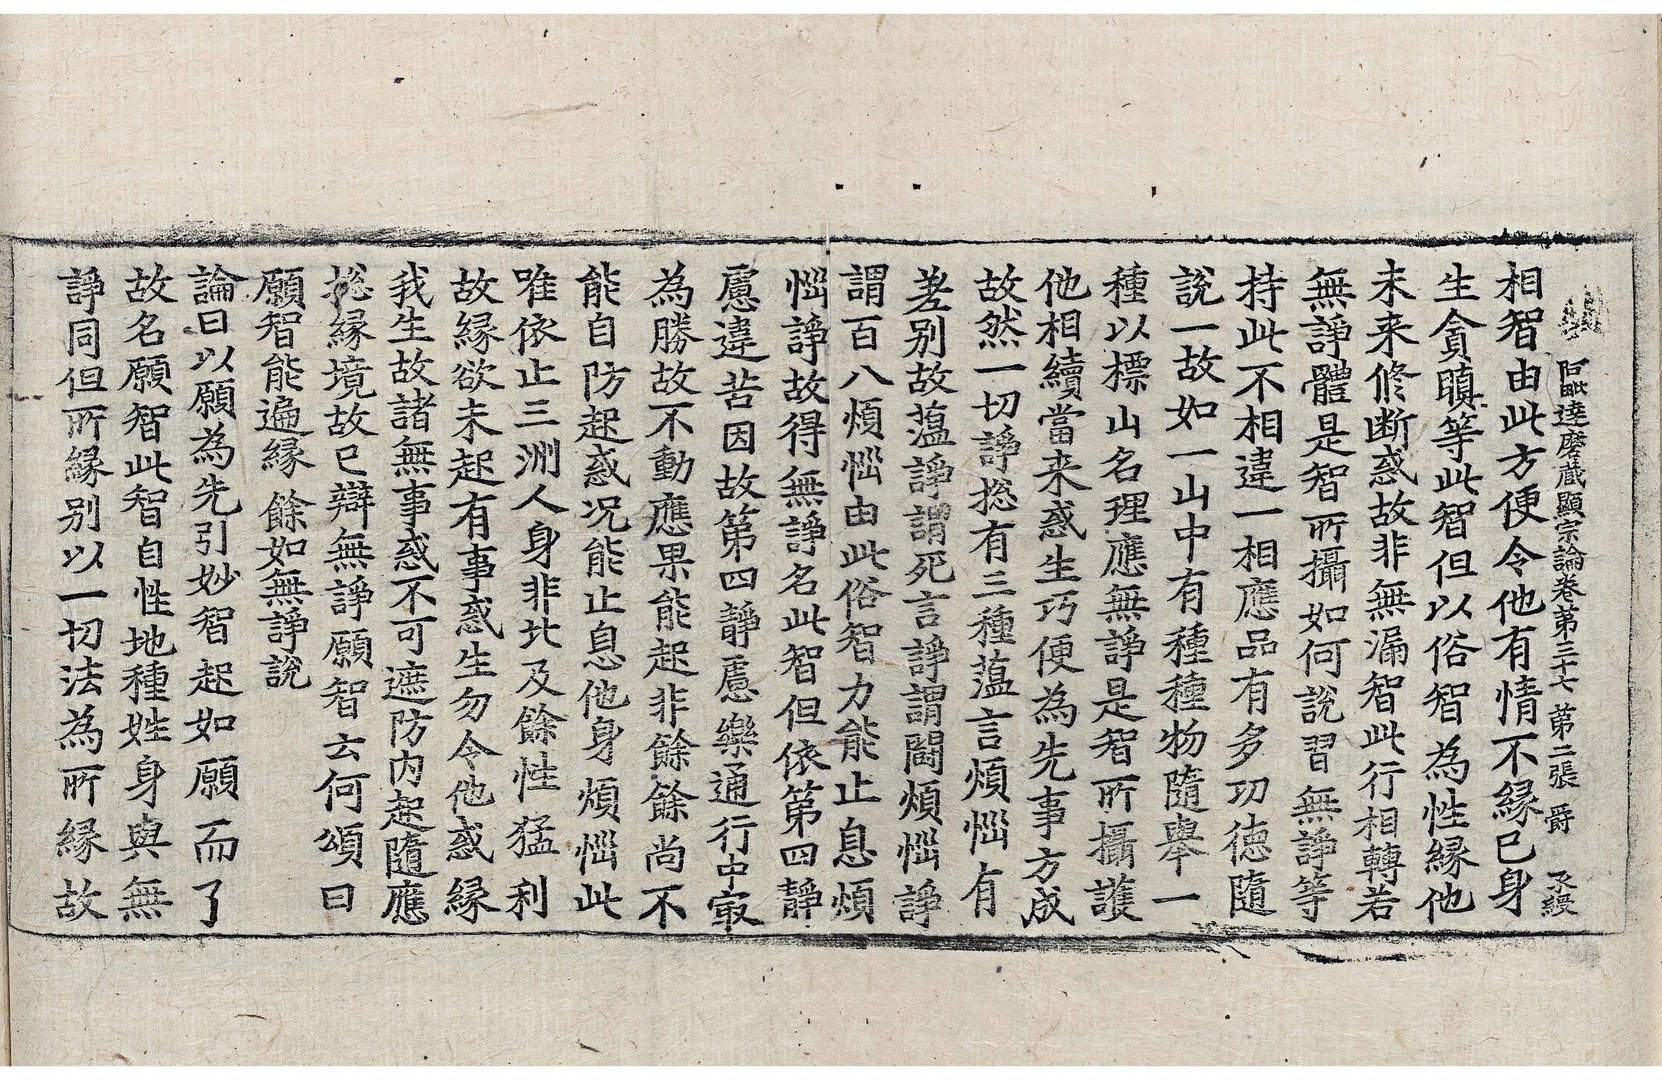 阿毗達磨藏顯宗論卷第三十七 第二張 爵
相智由此方便令他有情不緣已身
生貪瞋等此智但以俗智為性緣他
未来修断惑故非無漏智此行相轉若
無諍體是智所攝如何說習無諍等
持此不相違一相應品有多功德隨
說一故如一山中有種種物隨舉一
種以標山名理應無諍是智所攝護
他相續當来惑生巧便為先事方成
故然一切諍揔有三種薀言煩惱有
差别故薀諍謂死言諍謂鬪煩惱諍
謂百八煩惱由此俗智力能止息煩
惱諍故得無諍名此智但依第四靜
慮違苦因故第四靜慮樂通行中㝡
為勝故不動應果能起非餘餘尚不
能自防起惑况能止息他身煩惱此
唯依止三洲人身非北及餘性猛利
故緣欲未起有事惑生勿令他惑緣
我生故諸無事惑不可遮防内起隨應
揔緣境故已辯無諍願智云何頌曰
願智能遍緣 餘如無諍說
論曰以願為先引妙智起如願而了
故名願智此智自性地種姓身與無
諍同但所緣别以一切法為所緣故